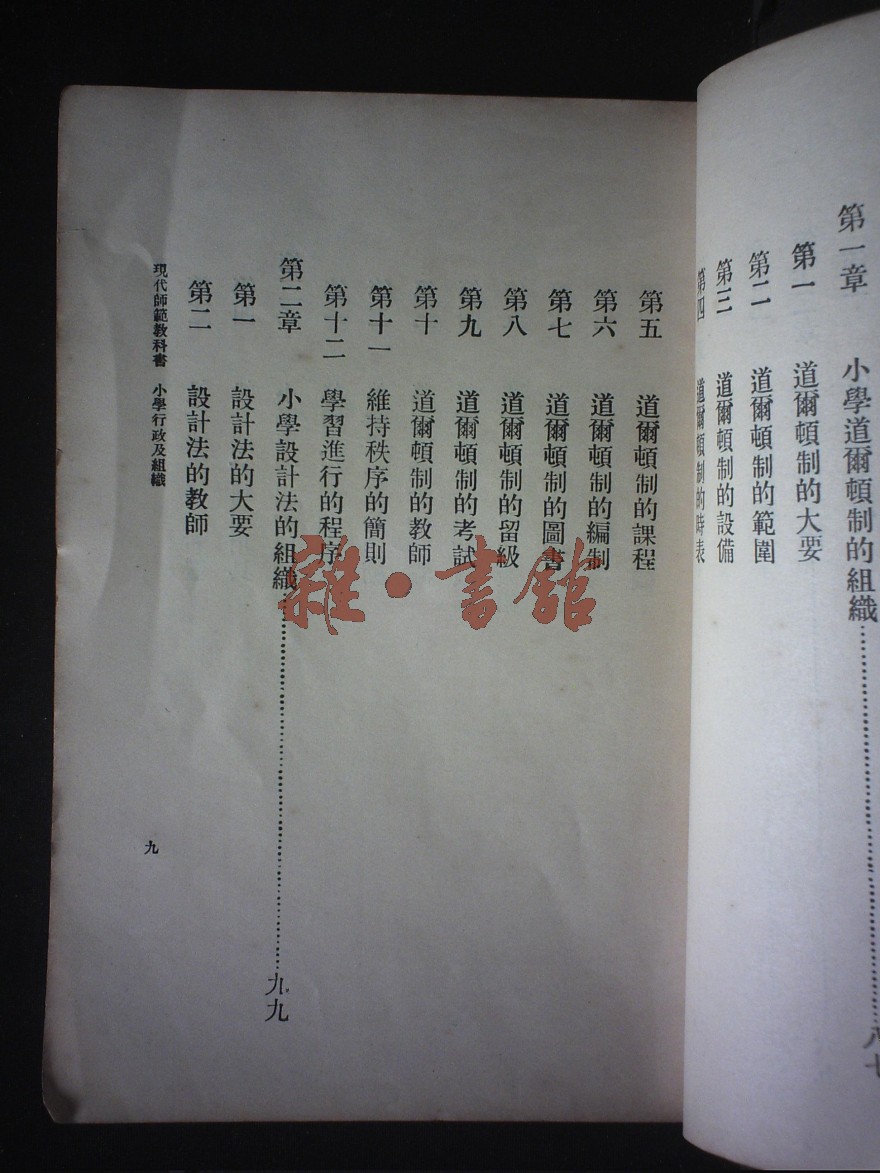 第一章 小學道爾頓制的組織……八七
第一 道爾頓制的大要
第二 道爾頓制的範圍
第三 道爾頓制的設備
第四 道爾頓制的時表
第五 道爾頓制的課程
第六 道爾頓制的編制
第七 道爾頓制的圖書
第八 道爾頓制的留級
第九 道爾頓制的考試
第十 道爾頓制的教師
第十一 維持秩序的簡則
第十二 學習進行的程序
第二章 小學設計法的組織……九九
第一 設計法的大要
第二 設計法的教師
現代師範教科書 小學行政及組織 九
雜·書館